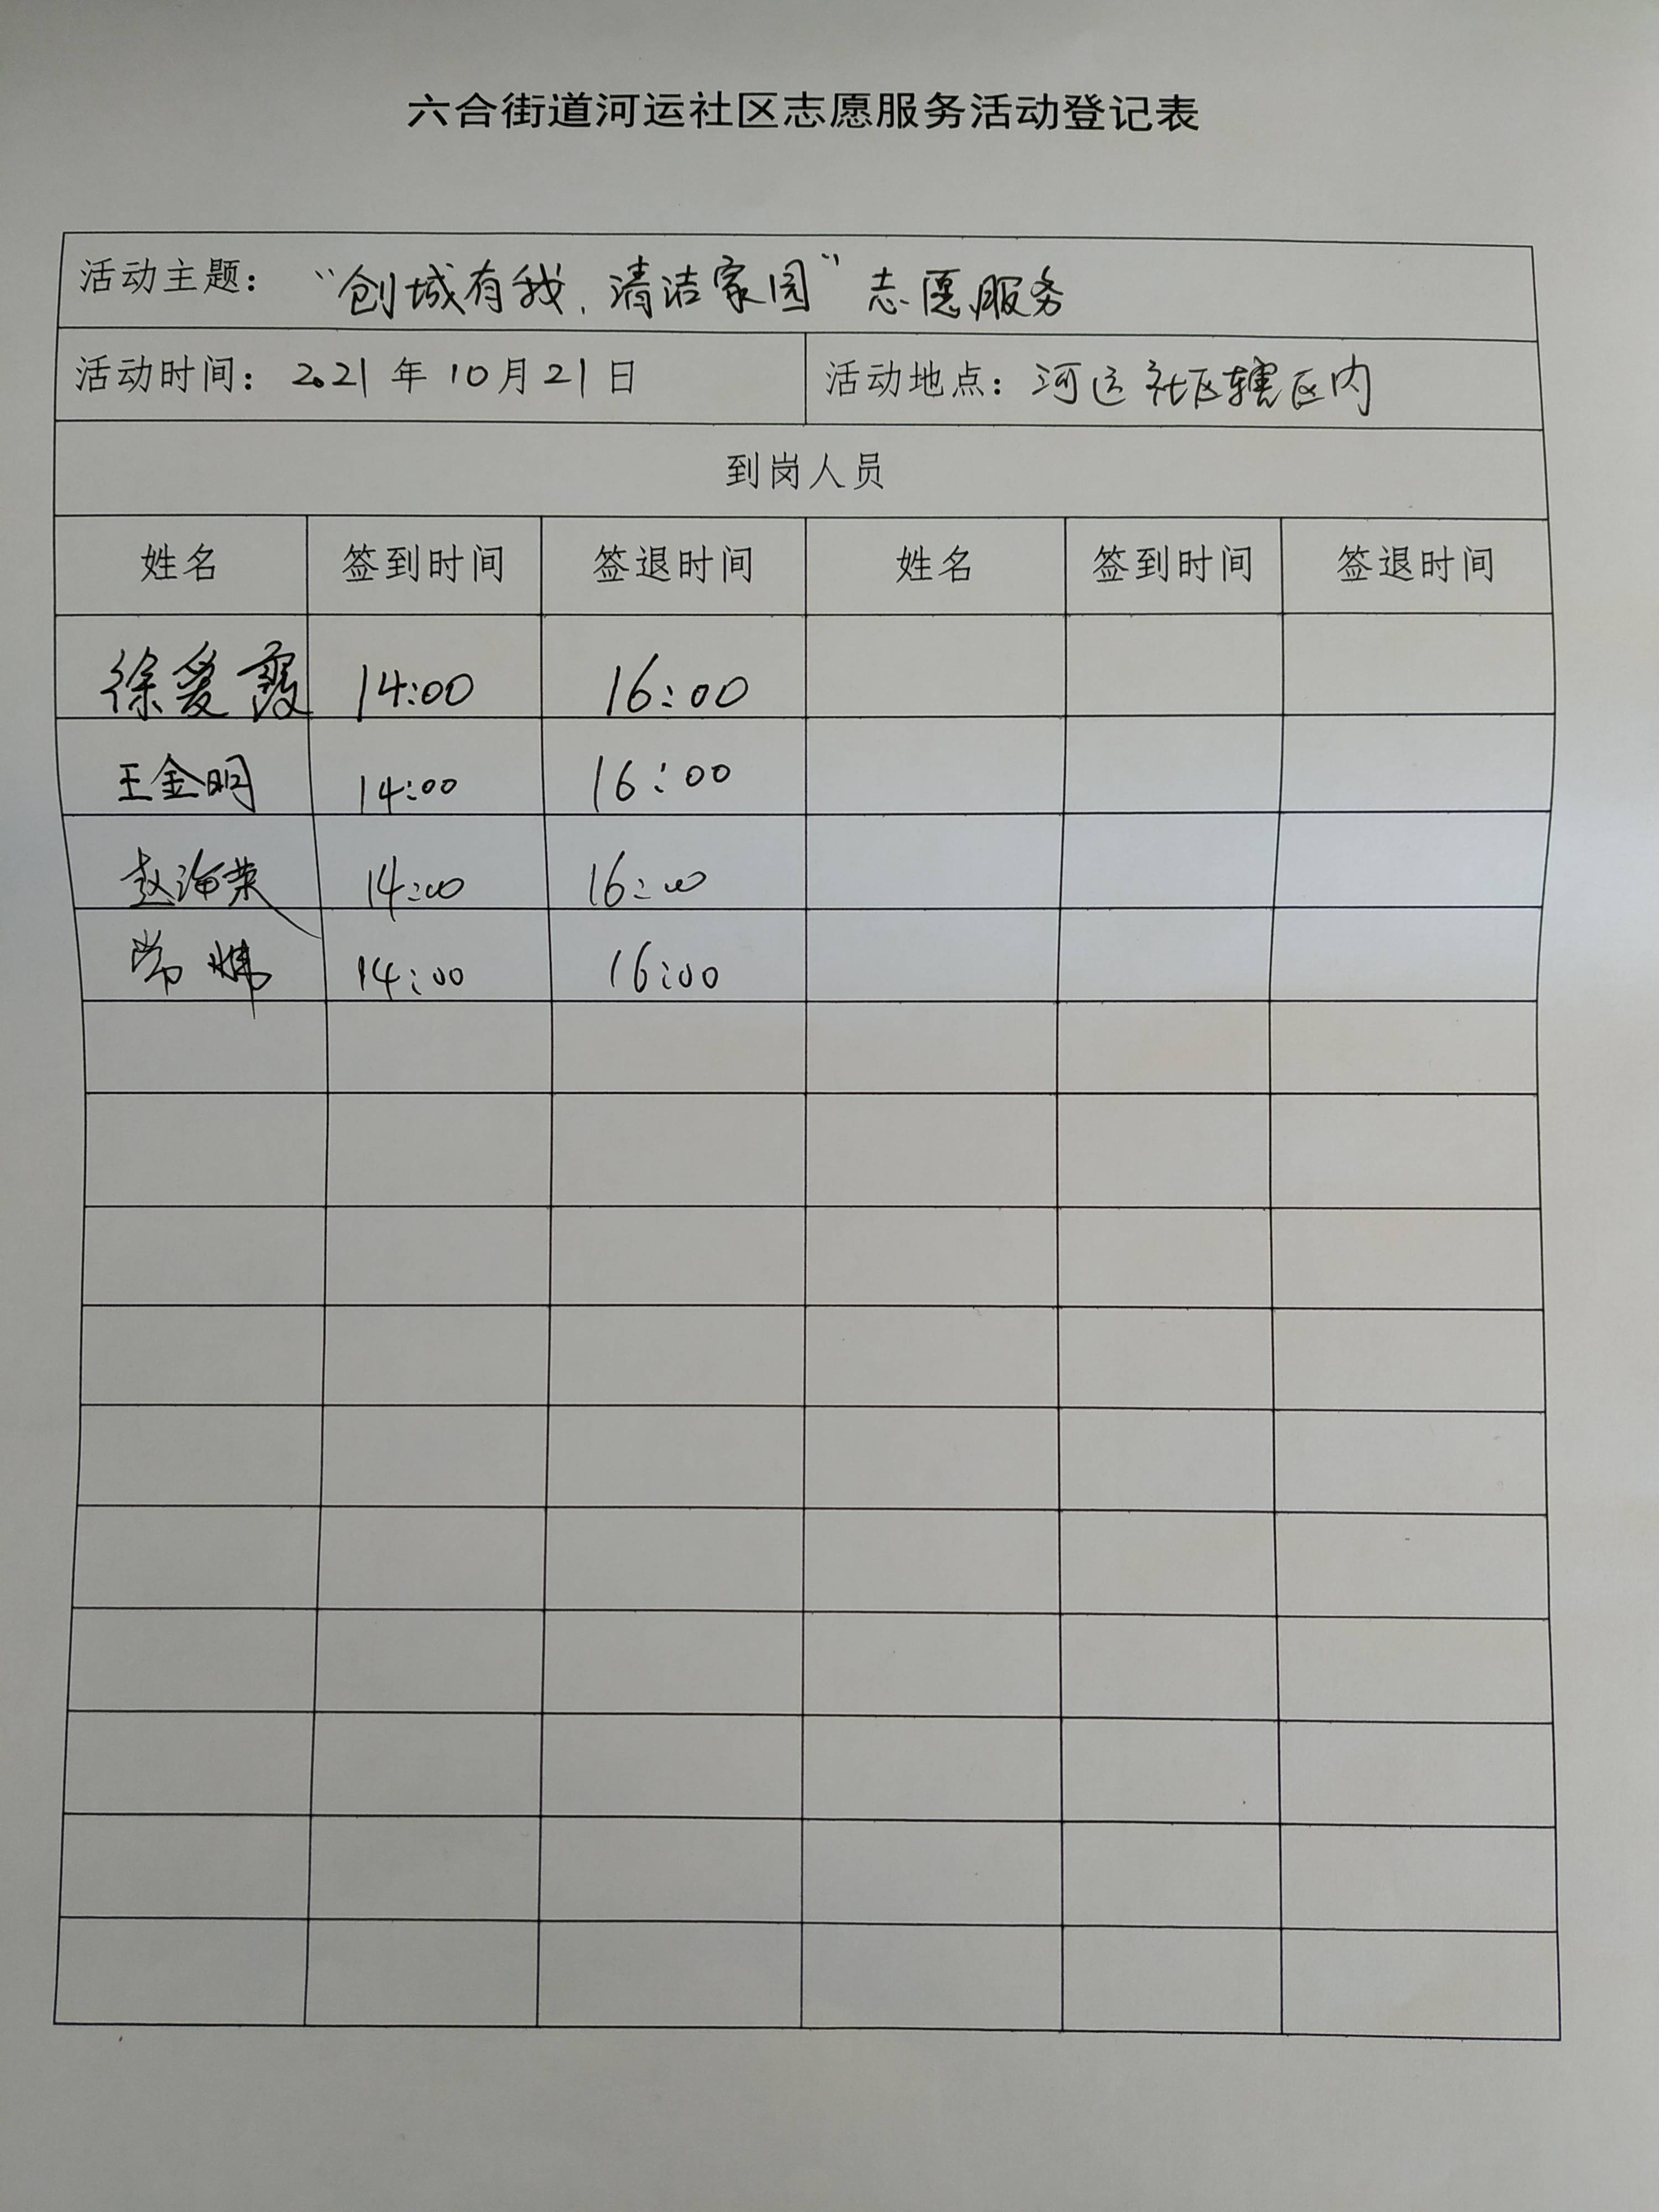 六合街道河运社区志愿服务活动登记表
活动主题： “创城有我，清洁家园” 志愿服务
活动时间： 2021 年 10 月 21 日 活动地点： 河运社区辖区内
到岗人员
姓名 签到时间 签退时间 姓名 签到时间 签退时间
徐爱霞 14:00 16:00
王金明 14:00 16:00
赵海荣 14:00 16:00
常 14:00 16:00